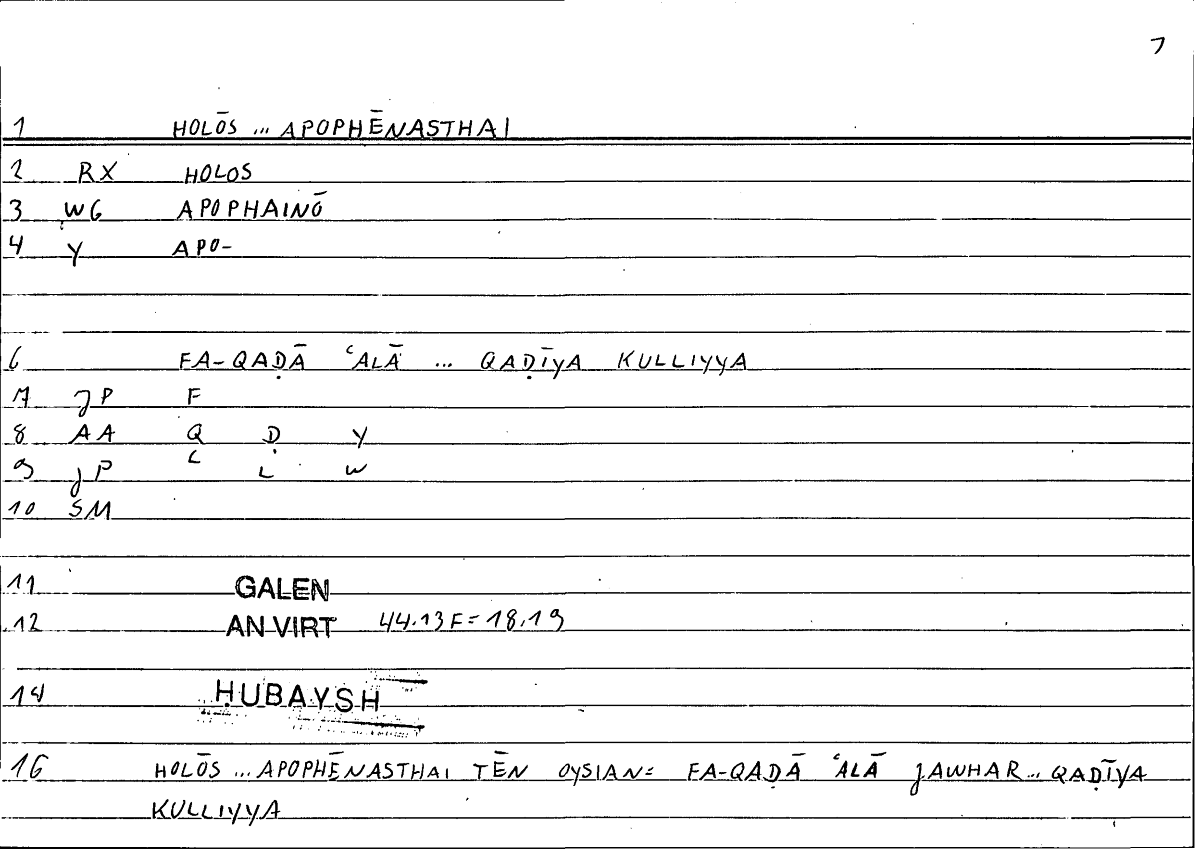 7
1 HOLŌS ... APOPHĒNASTHAI
2 RX HOLOS
3 ẈG APOPHAINŌ
4 Y APO-
6 FA-QAḌĀ ʿALĀ ... QAḌĪYA KULLIYYA
7 JP F
8 AA Q Ḍ Y
9 JP ʿ L W
10 SM
11 GALEN
12 AN VIRT 44.13F=18.19
14 ḤUBAYSH
16 HOLŌS ... APOPHĒNASTHAI TĒN OYSIAN= FA-QAḌĀ ʿALĀ JAWHAR ... QAḌĪYA
KULLIYYA